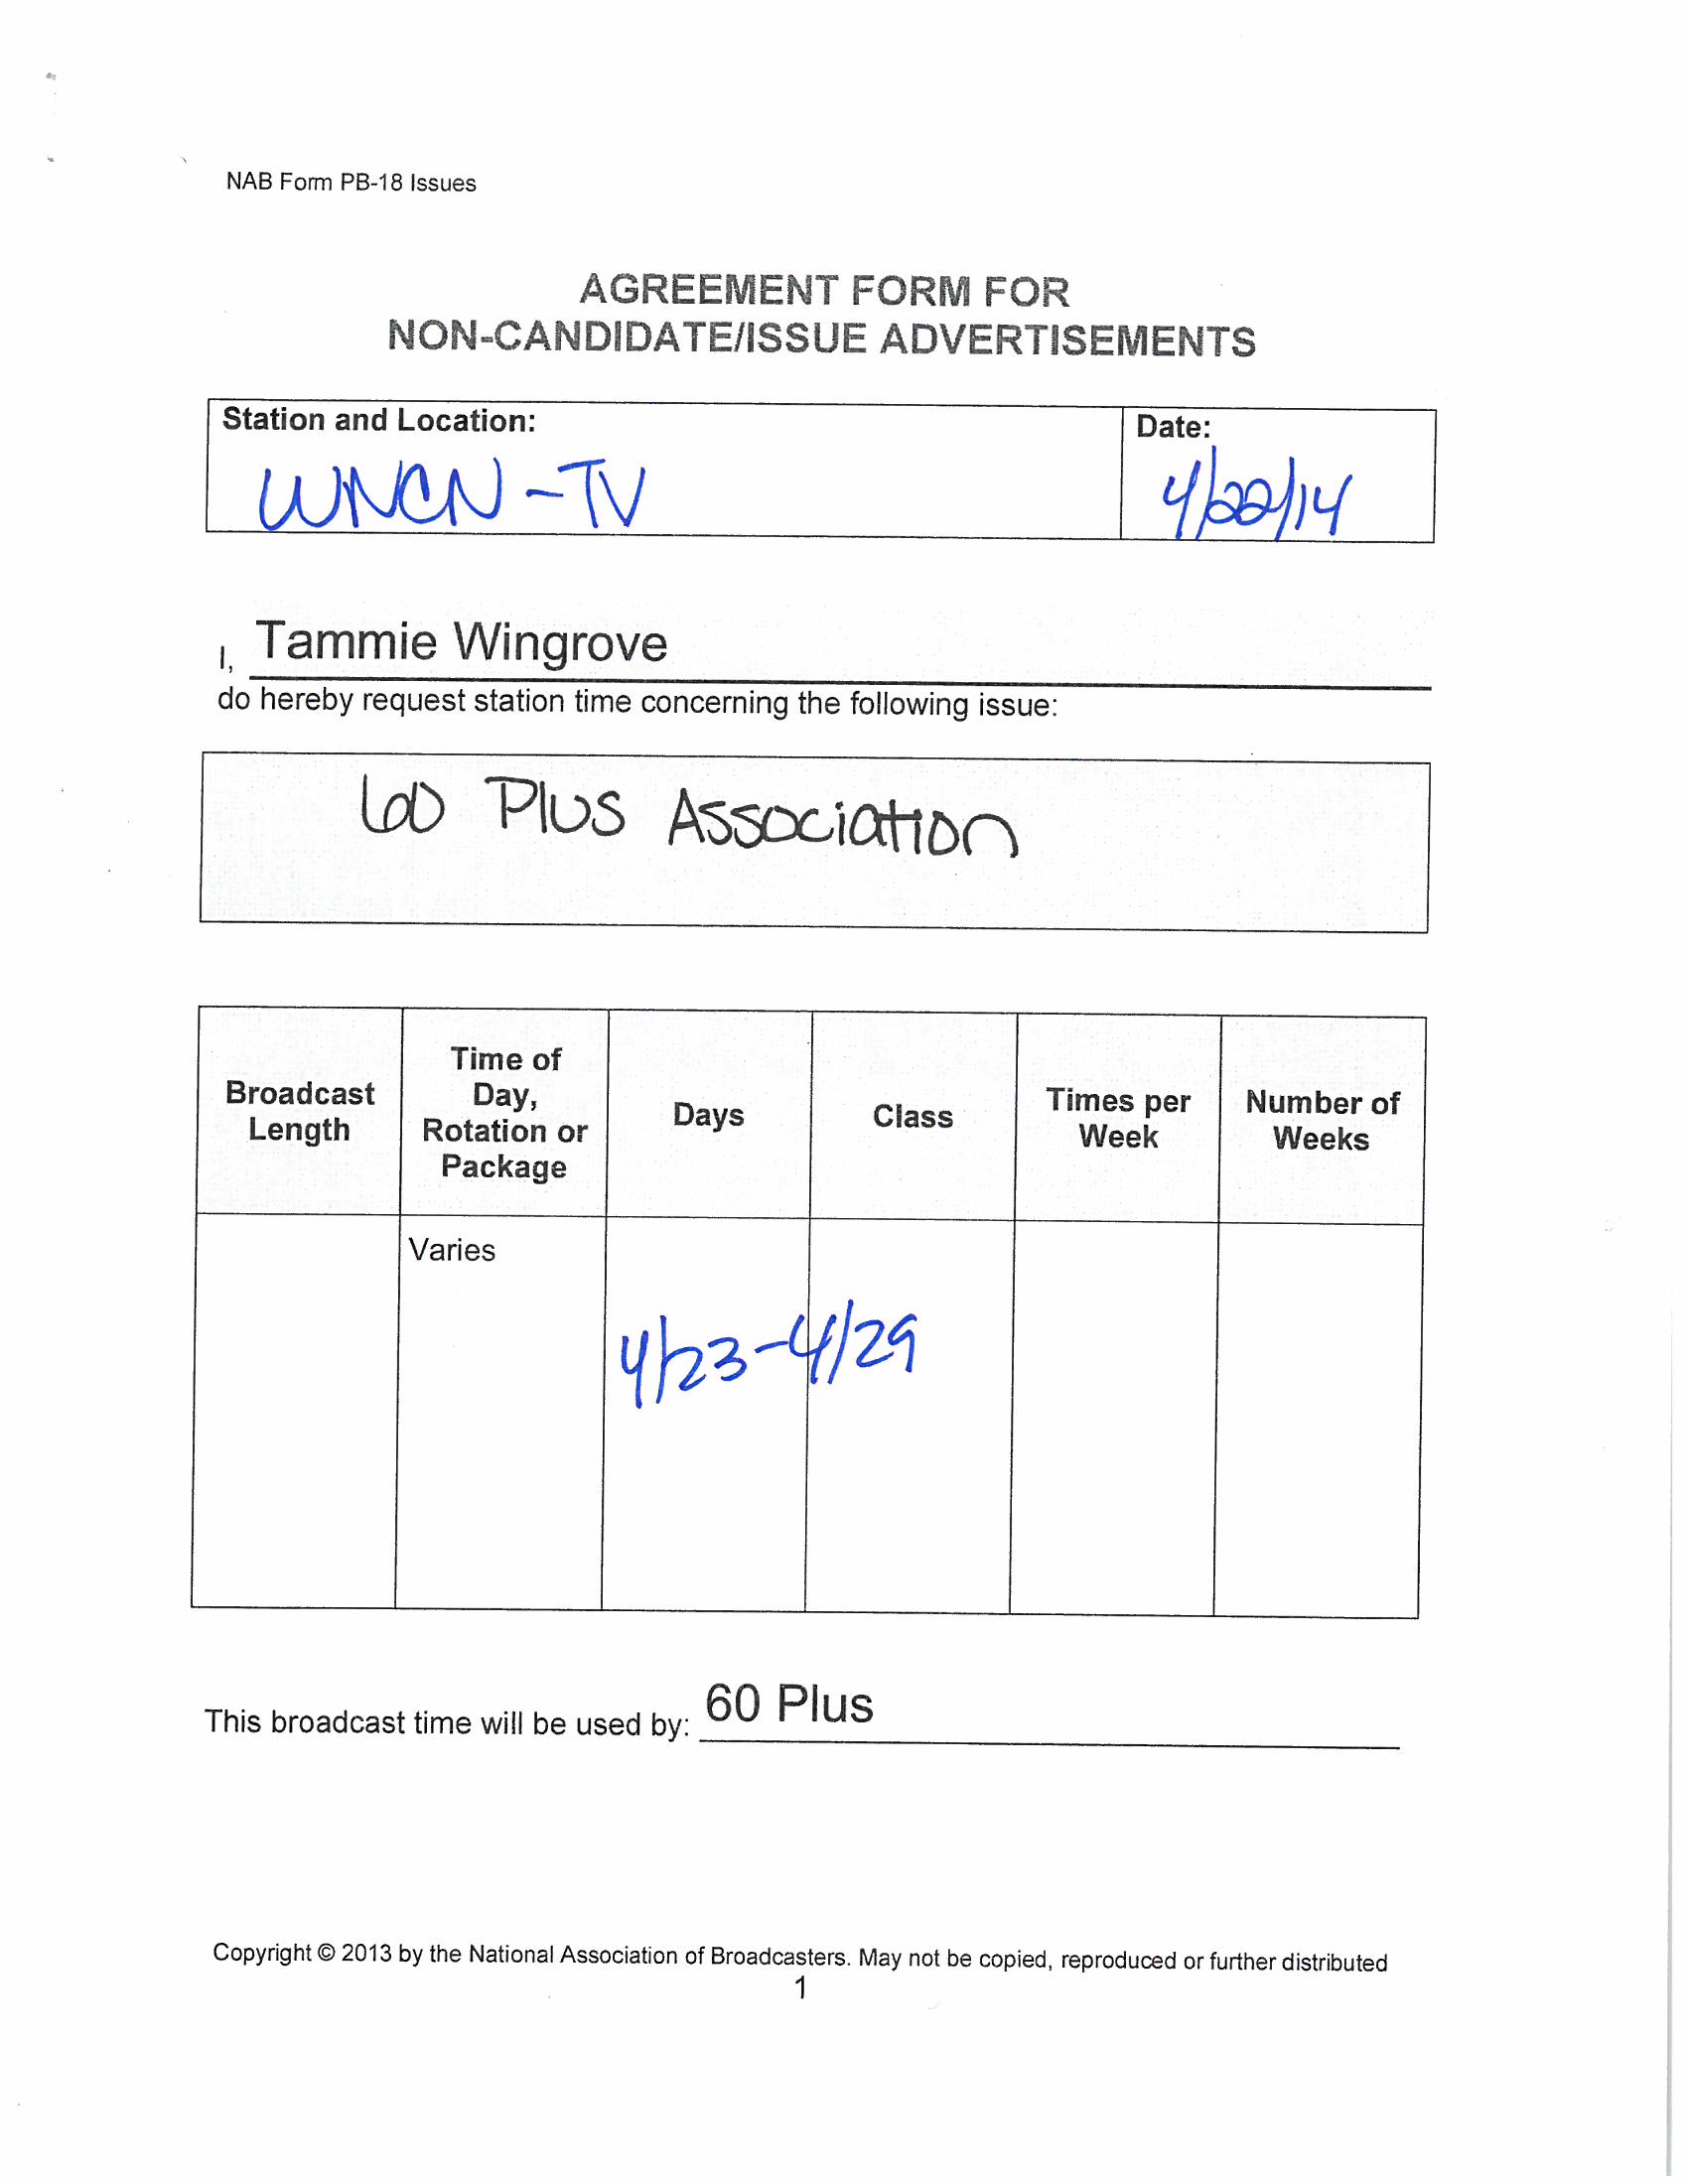 NAB Form PB-18 Issues
AGREEMENT FORM FOR
NON-CANDIDATE/ISSUE ADVERTISEMENTS
Station and Location:
WNCN-TV
Date:
4/22/14
I, Tammie Wingrove
do hereby request station time concerning the following issue:
60 Plus Association
Broadcast
Length
Time of
Day,
Rotation or
Package
Days
Class
Times per
Week
Number of
Weeks
Varies
4/23-4/29
This broadcast time will be used by: 60 Plus
Copyright © 2013 by the National Association of Broadcasters. May not be copied, reproduced or further distributed
1